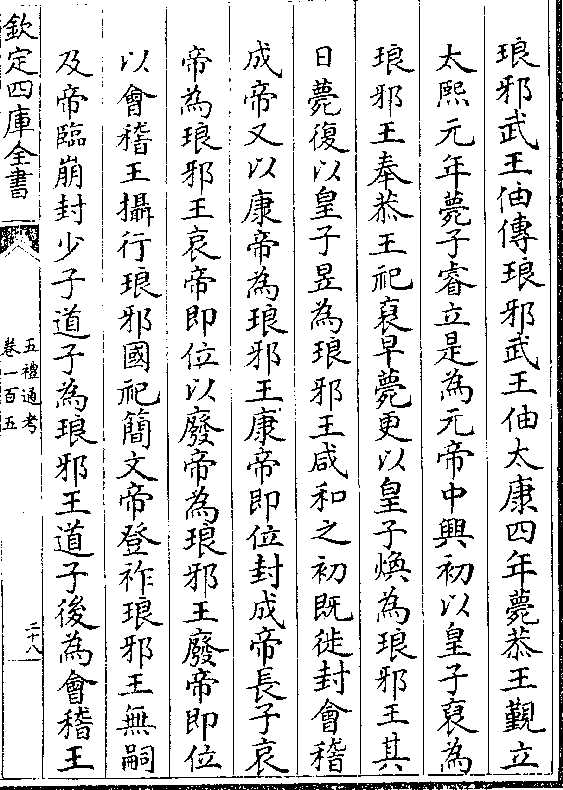 琅邪武王伷傳琅邪武王伷太康四年薨恭王覲立
太熙元年薨子睿立是為元帝中興初以皇子裒為
琅邪王奉恭王祀裒早薨更以皇子煥為琅邪王其
日薨復以皇子昱為琅邪王咸和之初既徙封會稽
成帝又以康帝為琅邪王康帝即位封成帝長子哀
帝為琅邪王哀帝即位以廢帝為琅邪王廢帝即位
以會稽王攝行琅邪國祀簡文帝登祚琅邪王無嗣
及帝臨崩封少子道子為琅邪王道子後為會稽王
欽定四庫全書
五禮通考
卷一百五
二十八